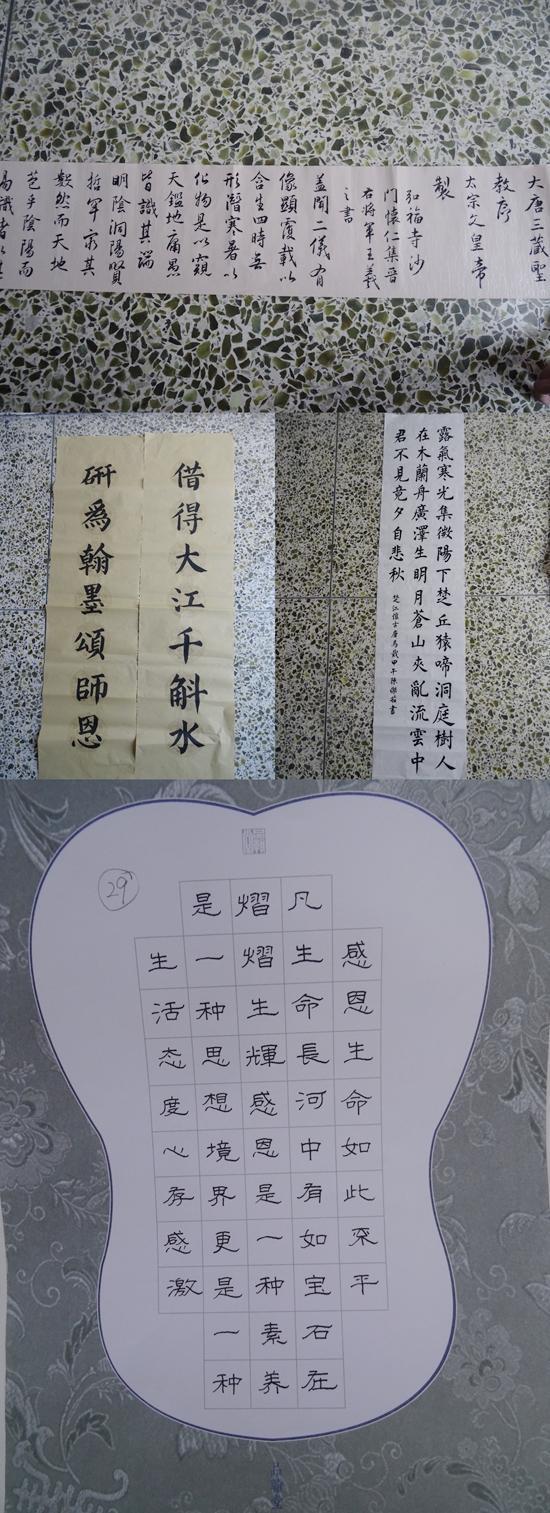 大唐三藏聖
教序
太宗文皇帝
製
弘福寺沙
門懷仁集晉
右將軍王羲
之書
蓋聞二儀有
像顯覆載以
含生四時無
形潛寒暑以
化物是以窺
天鑑地庸愚
皆識其端
明陰洞陽賢
哲罕窮其
數然而天地
苞乎陰陽而
易識者以其
借得大江千斛水
研爲翰墨頌師恩
露氣寒光集微陽下楚丘猿啼洞庭樹人
在木蘭舟廣澤生明月蒼山夾亂流雲中
君不見竟夕自悲秋
楚江懷古唐馬戴甲午陳傑書
29
感恩生命如此平
凡生命長河中有如宝石在
熠熠生輝感恩是一种素养
是一种思想境界更是一种
生活态度心存感激
品翰堂